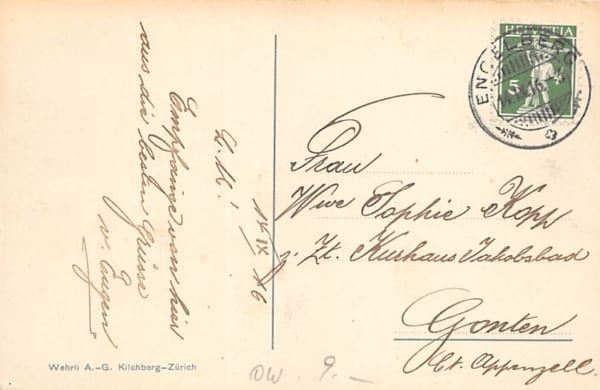 L. M.
14 IX 16
Empfange von hier
aus die besten Grüsse
v. Eugen
HELVETIA
5
ENGELBERG
Frau
Wwe Sophie Kopp
z. Zt. Kurhaus Jakobsbad
Gonten
Ct. Appenzell.
Wehrli A.-G. Kilchberg-Zürich
OW. 9.-